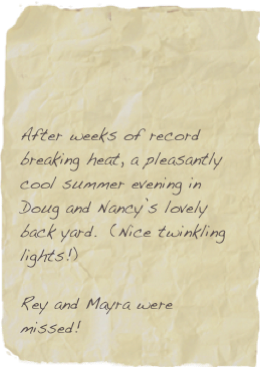 After weeks of record
breaking heat, a pleasantly
cool summer evening in
Doug and Nancy's lovely
back yard. (Nice twinkling
lights!)
Rey and Mayra were
missed!